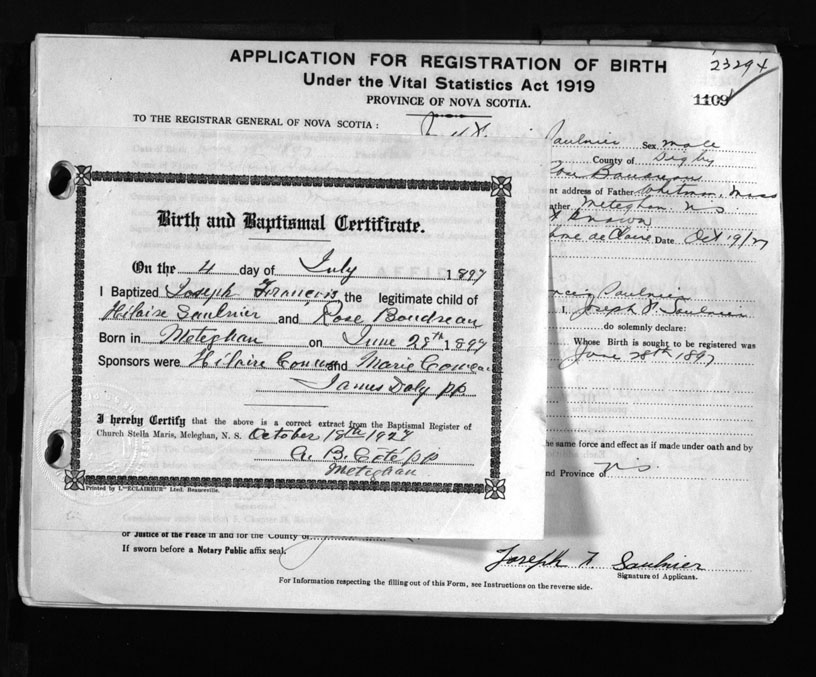 APPLICATION FOR REGISTRATION OF BIRTH
23294
Under the Vital Statistics Act 1919
1109
PROVINCE OF NOVA SCOTIA.
TO THE REGISTRAR GENERAL OF NOVA SCOTIA :
Saulnier Sex Male
County of Digby
Rose Boudreau
nt address of Father Whitman, Mass
ather Meteghan N S
Known
de Claire Date Oct 19/27
Birth and Baptismal Certificate.
On the 4 day of July 1897
I Baptized Joseph Francois the legitimate child of
Hilaire Saulnier and Rose Boudreau
Born in Meteghan on June 28th 1897
Sponsors were Hilaire Comeau and Marie Comeau
James Daly pp
I hereby Certify that the above is a correct extract from the Baptismal Register of
Church Stella Maris, Meteghan, N. S. October 18th 1927
A. B. Cote pp
Meteghan
Printed by L'"ECLAIREUR" Lted. Beauceville.
Saulnier
I, Joseph F. Saulnier
do solemnly declare:
Whose Birth is sought to be registered was
June 28th 1897
he same force and effect as if made under oath and by
nd Province of N.S.
or Justice of the Peace in and for the County of
If sworn before a Notary Public affix seal.
Joseph F Saulnier
Signature of Applicant.
For Information respecting the filling out of this Form, see Instructions on the reverse side.